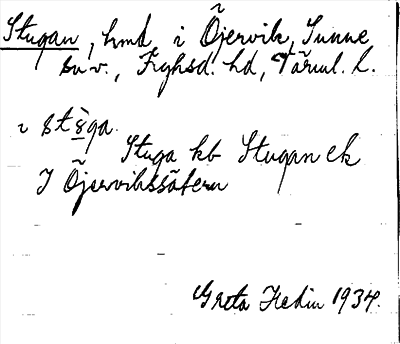 Stugan, hmd i Öjervik, Sunne
sn v., Fryksd. hd, Värml. l.
2 st8̀ga.
Stuga kb Stugan ek
I Öjervikssätern
Greta Hedin 1934.